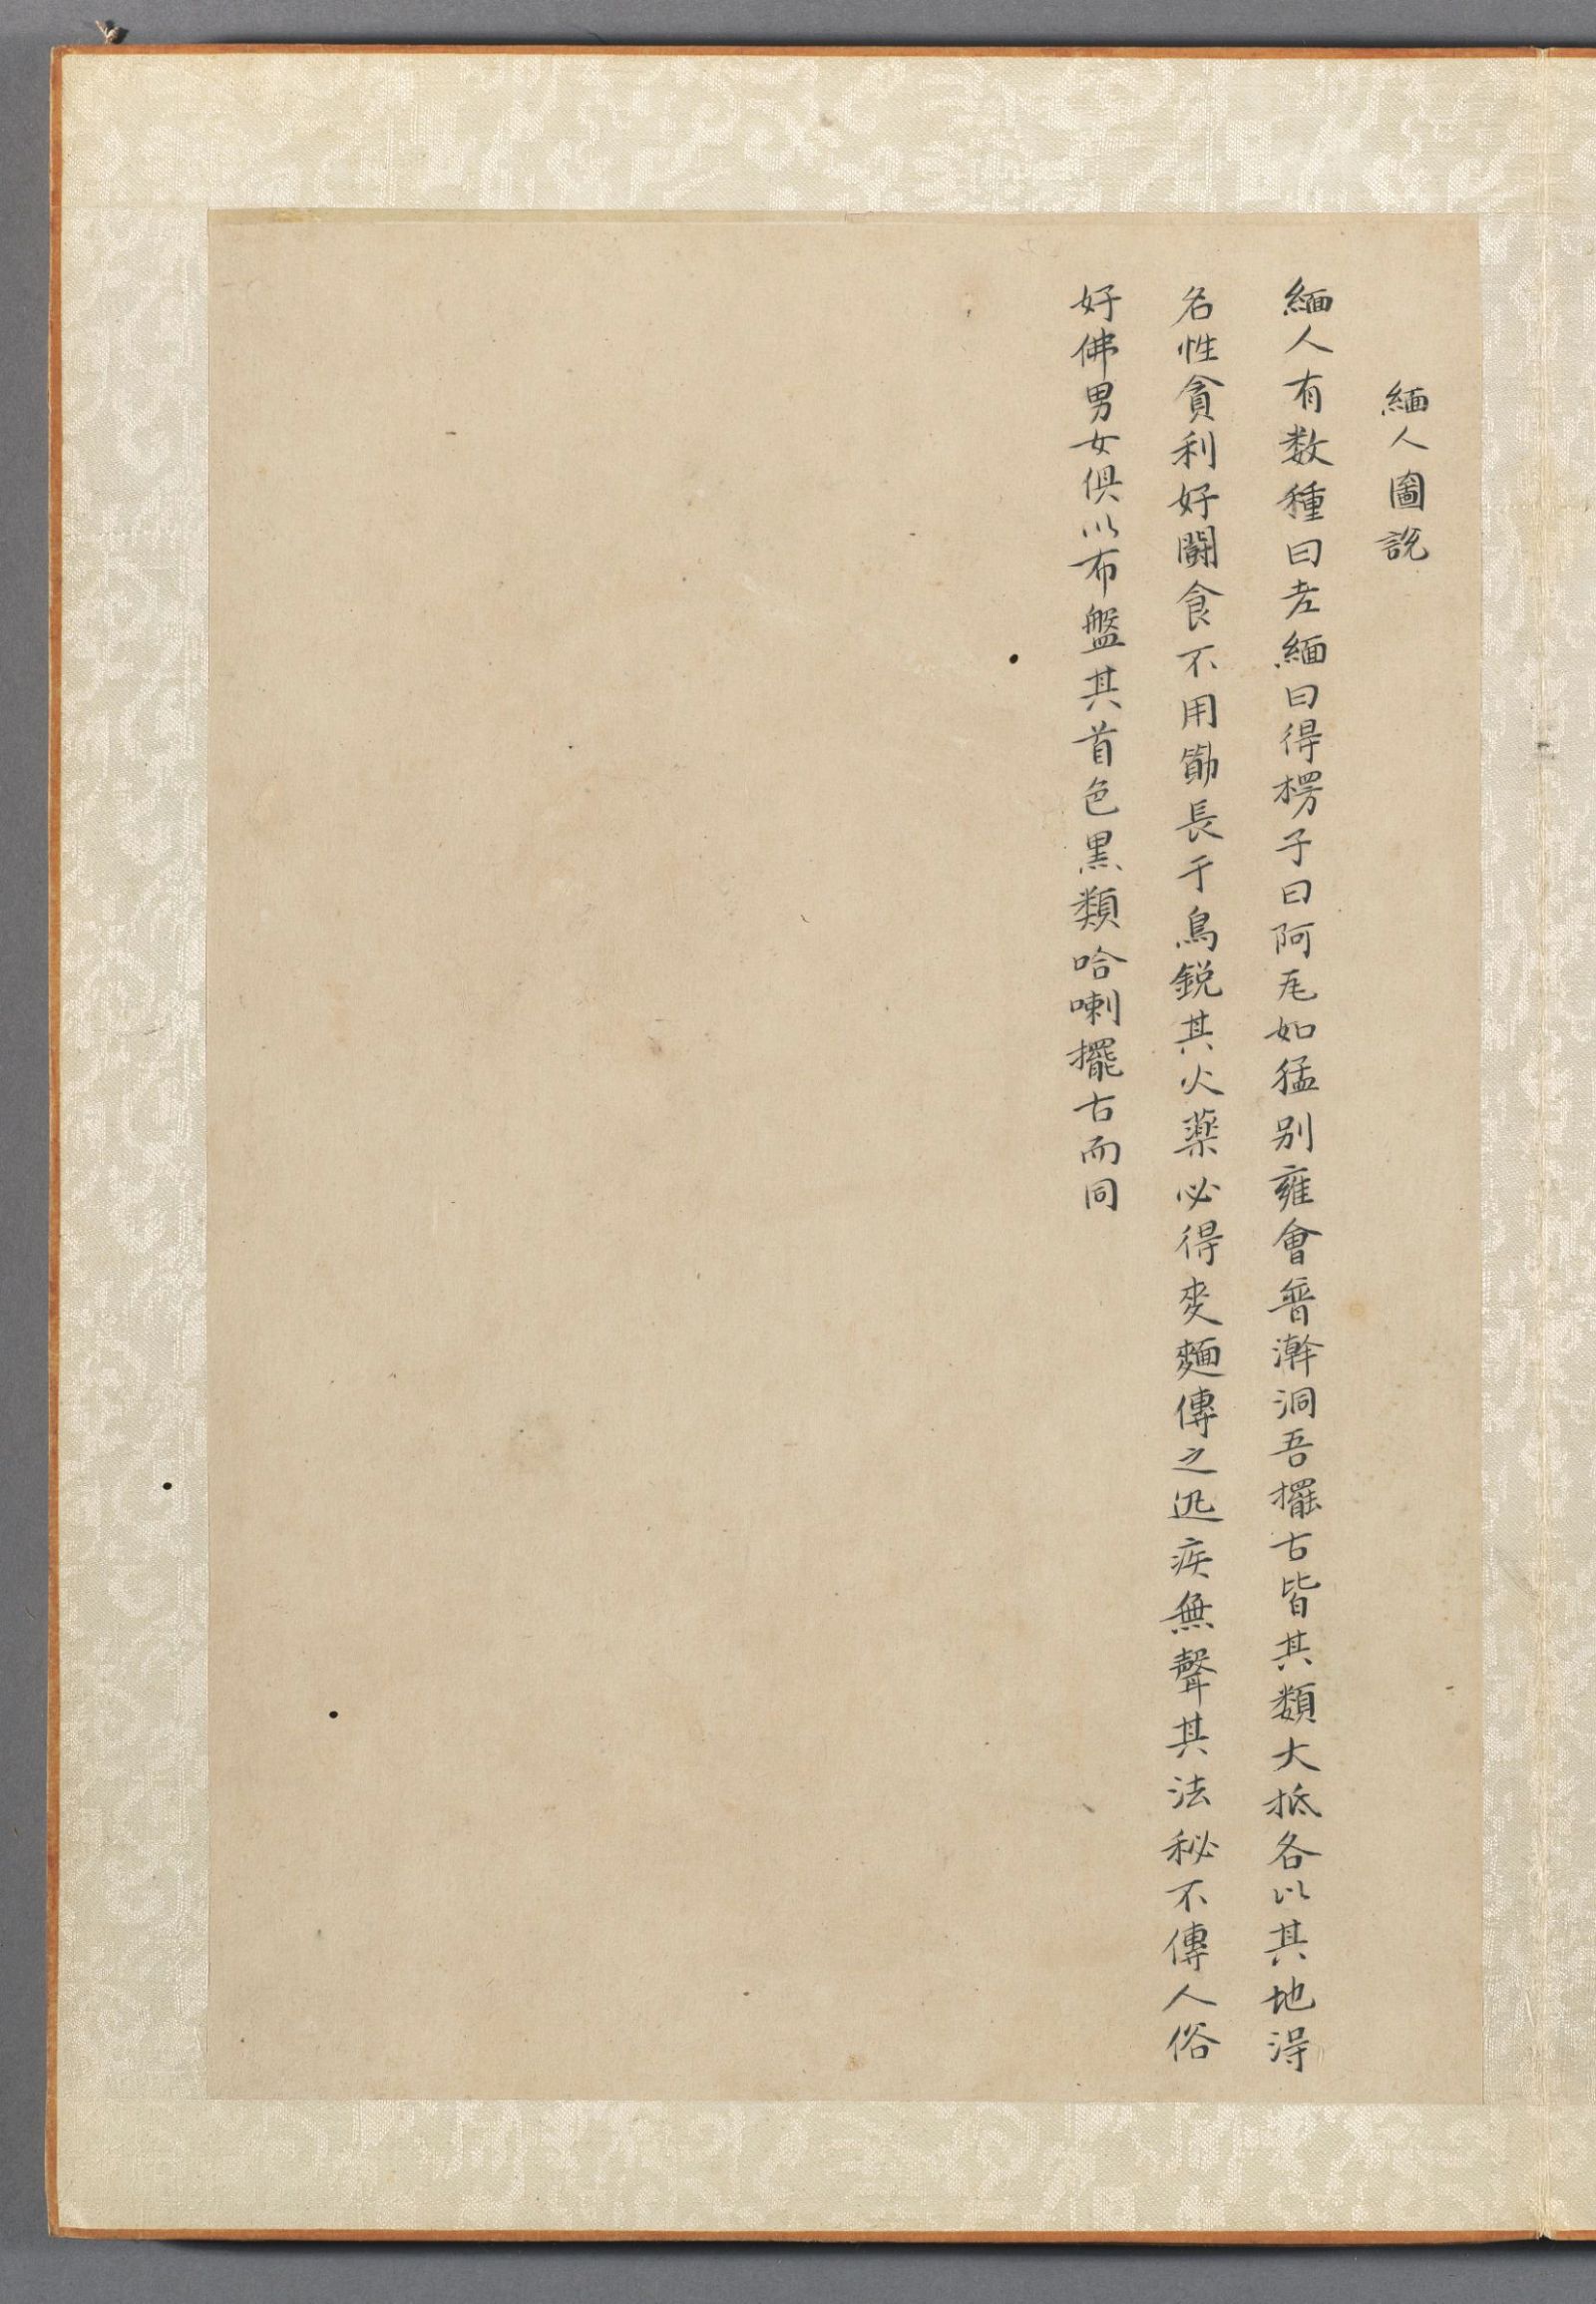 緬人圖説
緬人有数種曰老緬曰得楞子曰阿瓦如猛别雍會普澣洞吾擺古皆其類大抵各以其地得
名性貪利好鬭食不用筯長于鳥鋭其火藥必得麥麵傳之迅疾無聲其法秘不傳人俗
好佛男女俱以布盤其首色黒類哈喇擺古而同